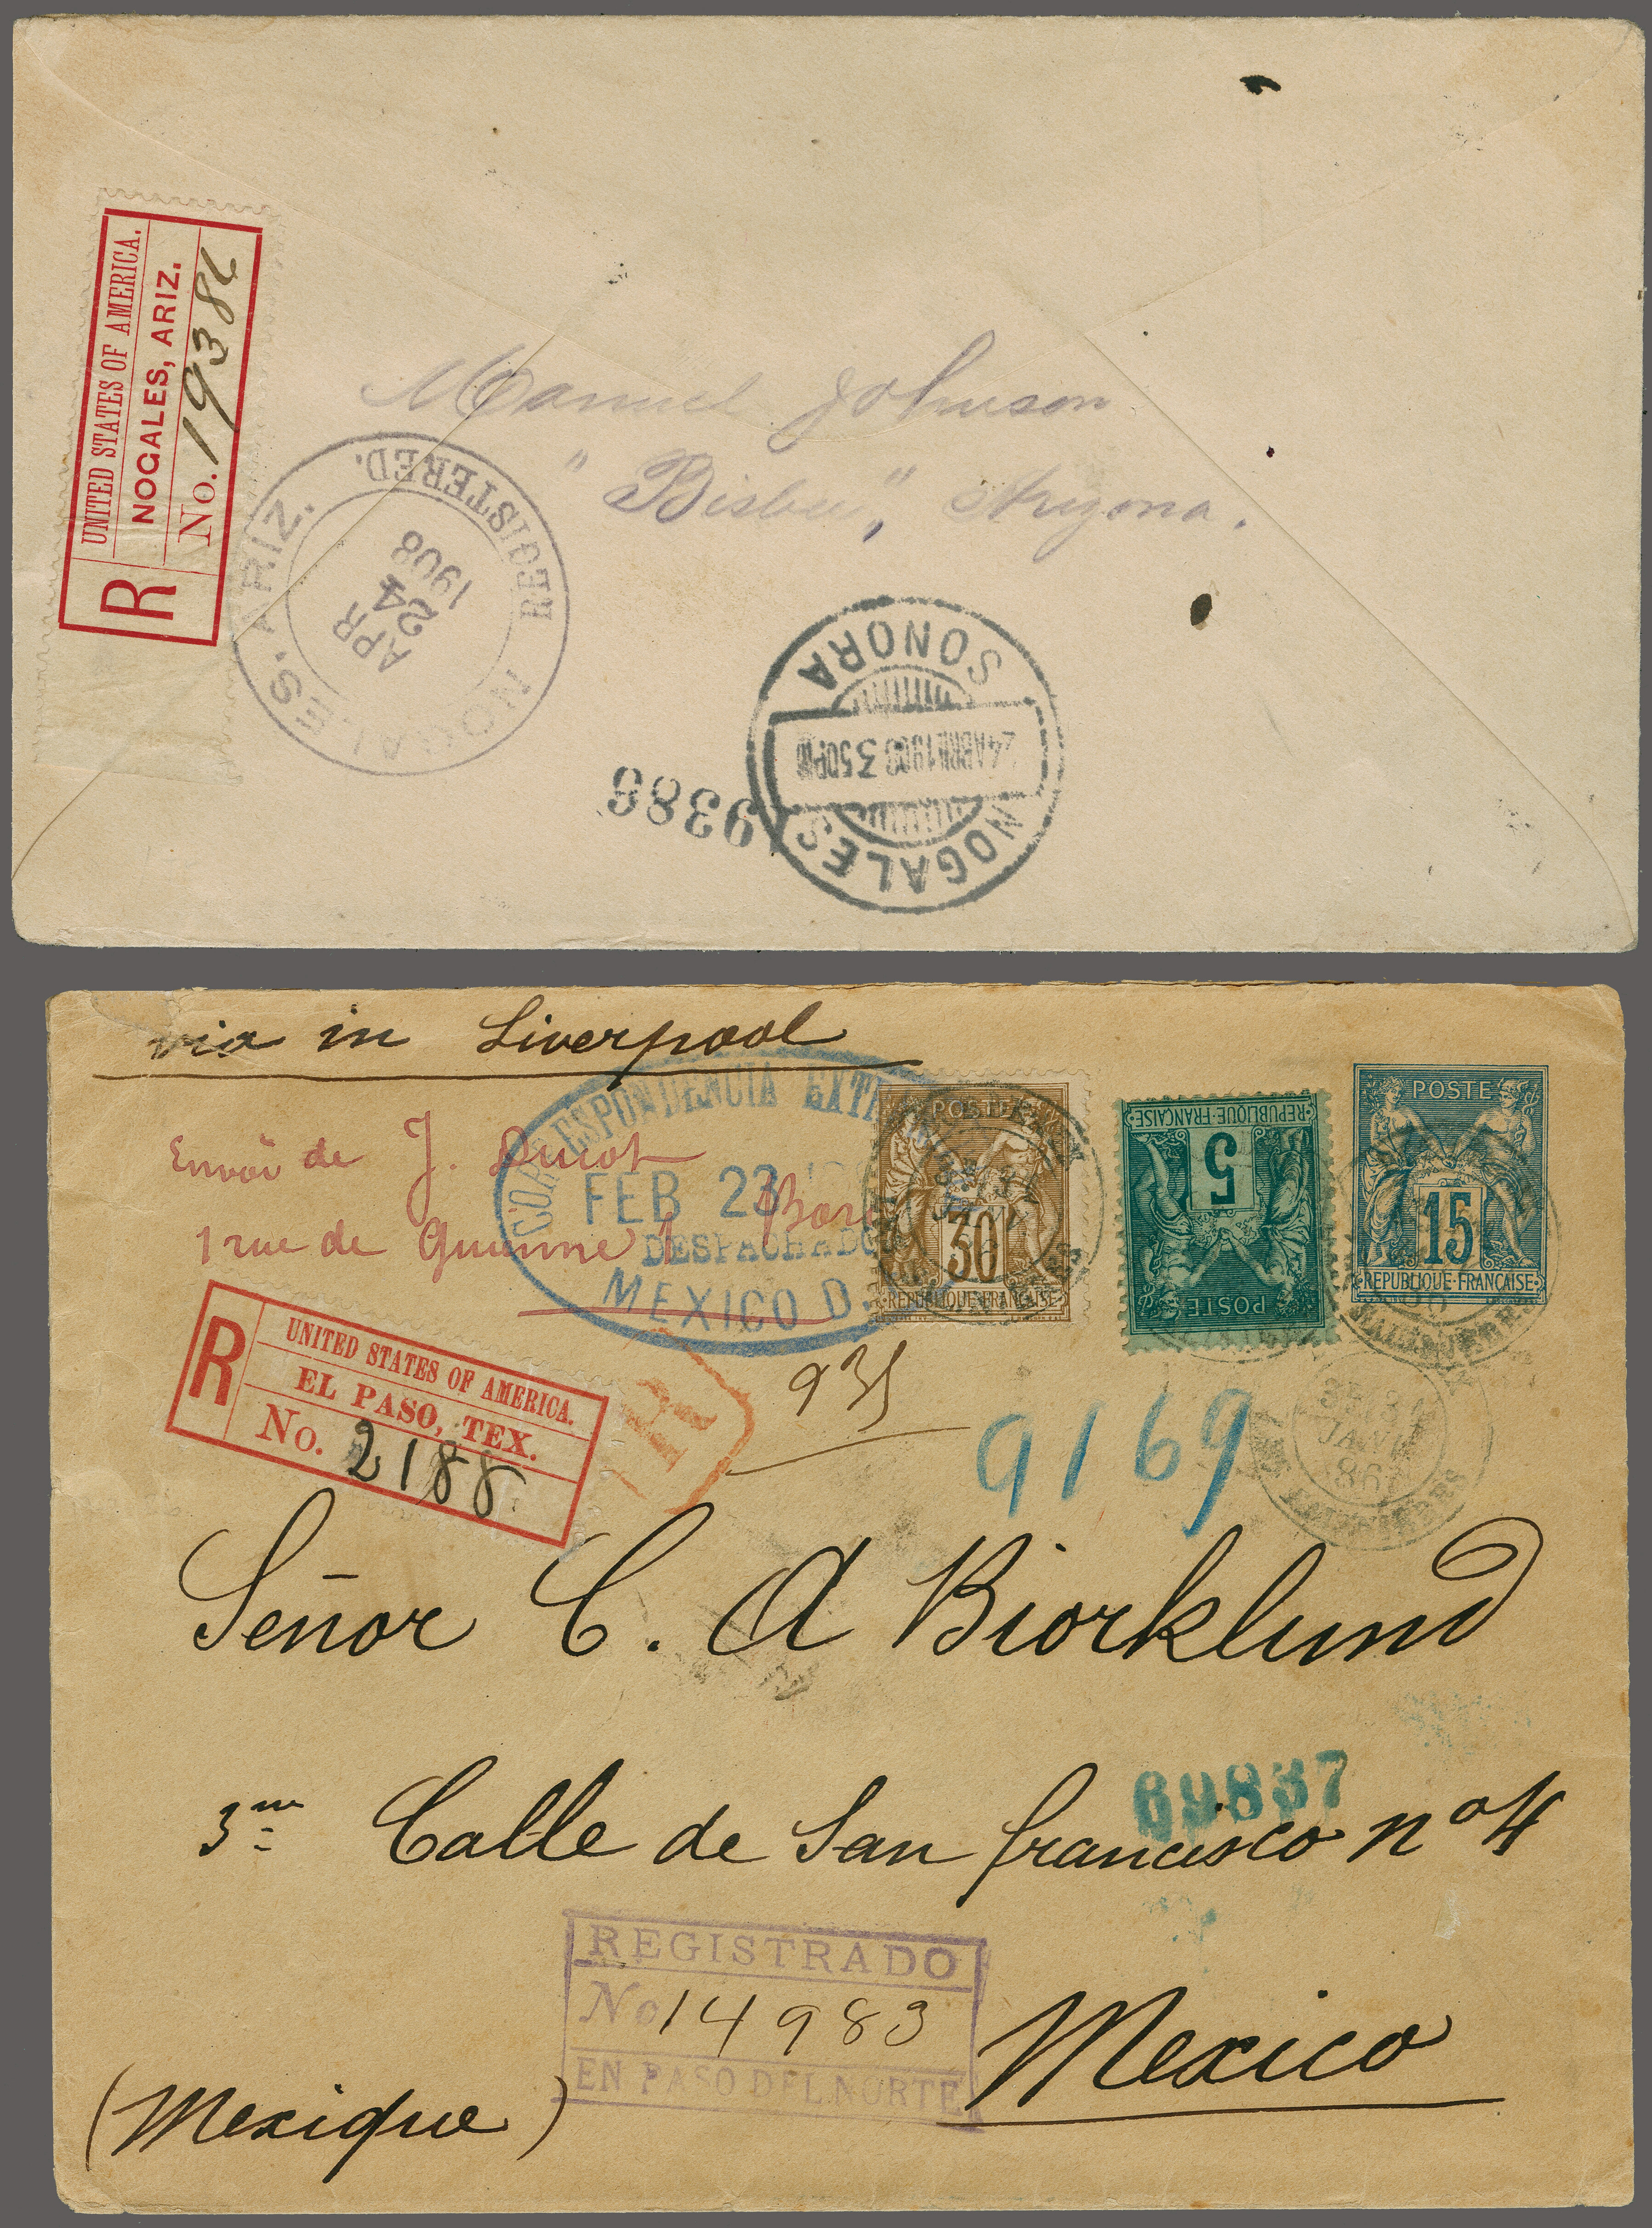 UNITED STATES OF AMERICA.
NOGALES, ARIZ.
R No. 19386
Manuel Johnson
"Bisbee", Arizona.
NOGALES. ARIZ.
REGISTERED.
APR
24
1908
SONORA
24 ABRIL 1908 3 50PM
NOGALES
19386
via in Liverpool
Envoi de J. Ducot
1 rue de Guienne
CORRESPONDENCIA EXT
FEB 23
DESPACHADO
MEXICO D.
POSTE
30
REPUBLIQUE FRANÇAISE
REPUBLIQUE·FRANÇAISE
5
POSTE
POSTE
15
REPUBLIQUE·FRANÇAISE
R
UNITED STATES OF AMERICA.
EL PASO, TEX.
No. 2188
R
935
9169
3E/31
JANV
86
Señor C. A Biorklund
69837
3me Calle de San francisco no 4
REGISTRADO
No 14983
EN PASO DEL NORTE
Mexico
(Mexique)